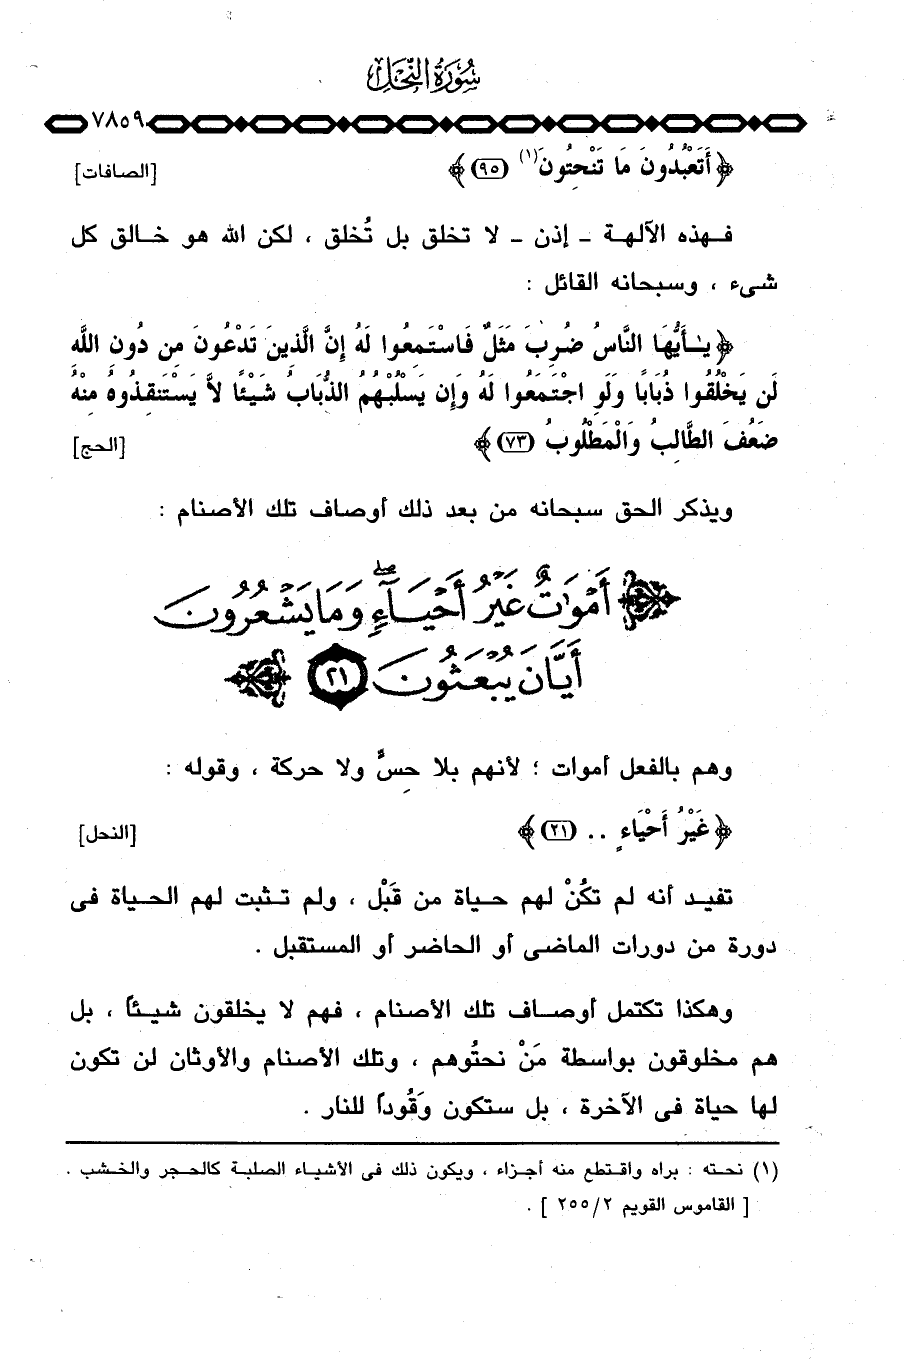 سُورَةُ النَّحْلِ
٧٨٥٩
﴿ أَتَعْبُدُونَ مَا تَنْحِتُونَ (١) (٩٥) ﴾ [الصافات]
فـهذه الآلهـة ـ إذن ـ لا تخلق بل تُخلق ، لكن الله هو خـالق كل
شىء ، وسبحانه القائل :
﴿ يَـٰأَيُّهَا النَّاسُ ضُرِبَ مَثَلٌ فَاسْتَمِعُوا لَهُ إِنَّ الَّذِينَ تَدْعُونَ مِن دُونِ اللَّهِ
لَن يَخْلُقُوا ذُبَابًا وَلَوِ اجْتَمَعُوا لَهُ وَإِن يَسْلُبْهُمُ الذُّبَابُ شَيْئًا لاَّ يَسْتَنقِذُوهُ مِنْهُ
ضَعُفَ الطَّالِبُ وَالْمَطْلُوبُ (٧٣) ﴾ [الحج]
ويذكر الحق سبحانه من بعد ذلك أوصاف تلك الأصنام :
﴿ أَمْوَٰتٌ غَيْرُ أَحْيَآءٍ ۖ وَمَا يَشْعُرُونَ
أَيَّانَ يُبْعَثُونَ ٢١ ﴾
وهم بالفعل أموات ؛ لأنهم بلا حِسٍّ ولا حركة ، وقوله :
﴿ غَيْرُ أَحْيَاءٍ .. (٢١) ﴾ [النحل]
تفيـد أنه لم تكُنْ لهم حـياة من قَبْل ، ولم تـثبت لهم الحـياة فى
دورة من دورات الماضى أو الحاضر أو المستقبل .
وهكذا تكتمل أوصـاف تلك الأصنام ، فهم لا يخلقون شيـئاً ، بل
هم مخلوقون بواسطة مَنْ نحتُوهم ، وتلك الأصنام والأوثان لن تكون
لها حياة فى الآخرة ، بل ستكون وَقُوداً للنار .
(١) نحـته : براه واقـتطع منه أجزاء ، ويكون ذلك فى الأشياء الصلبة كالحـجر والخـشب .
[ القاموس القويم ٢/٢٥٥ ] .